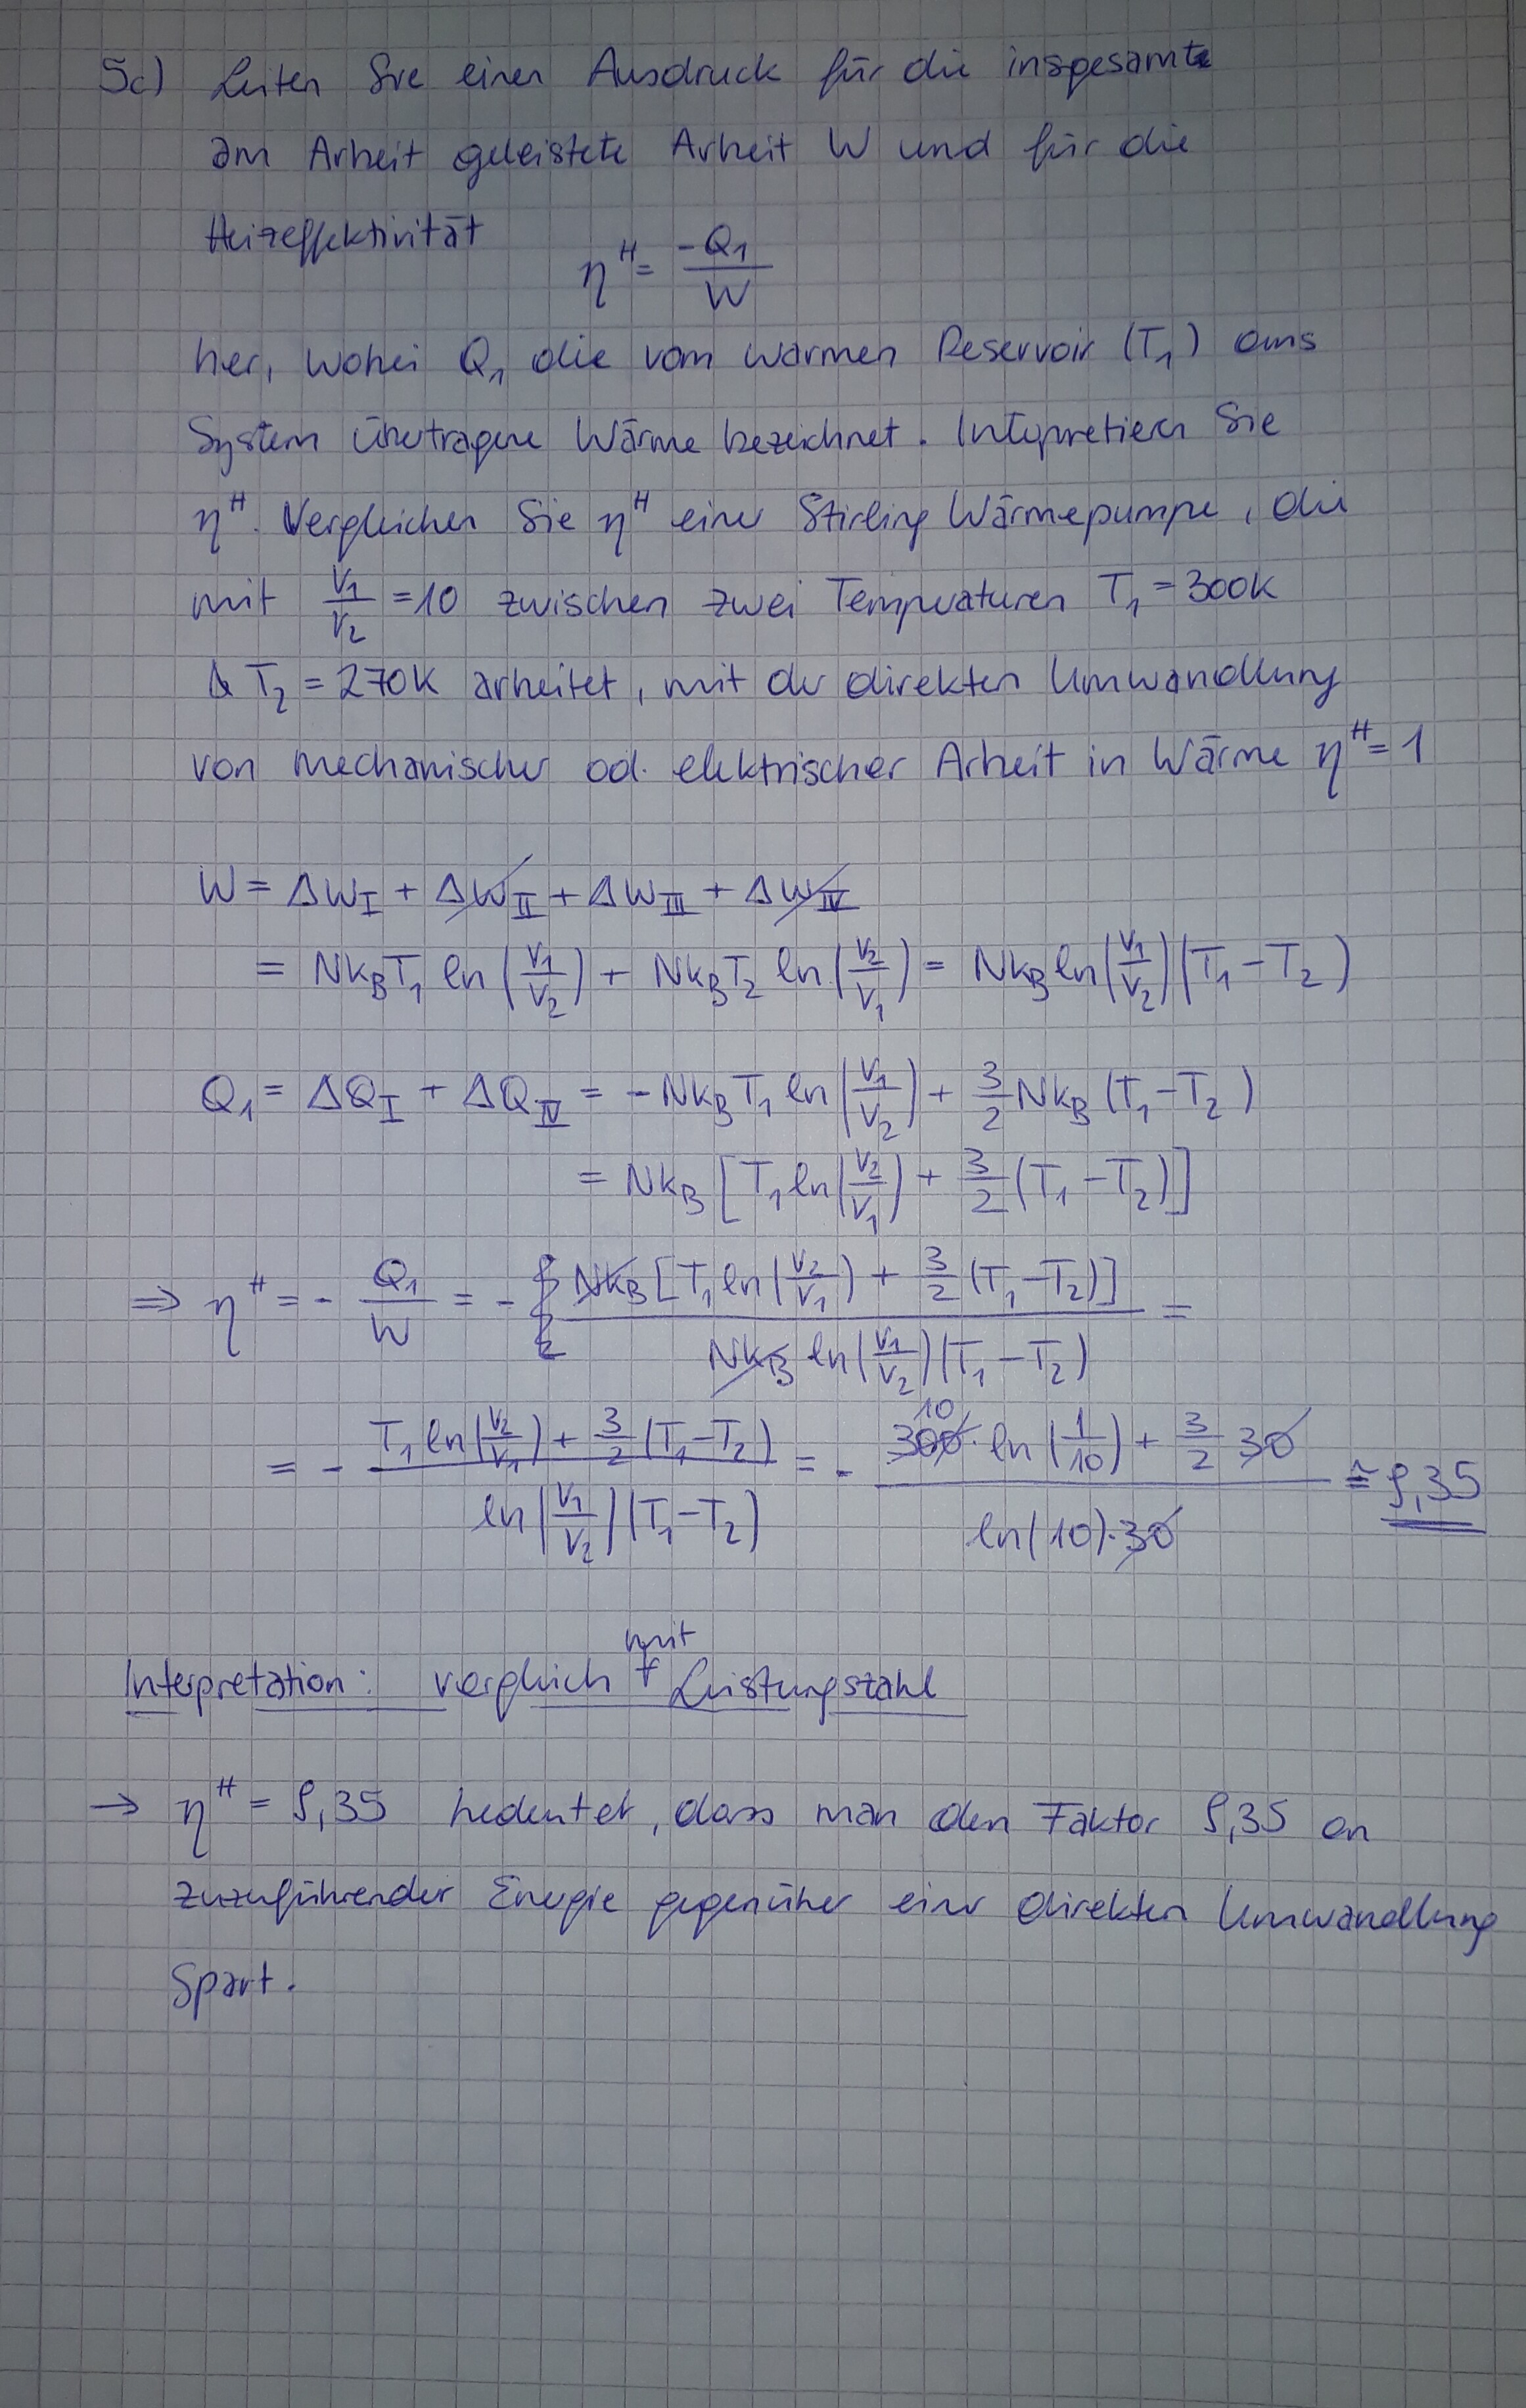 5c) Leiten Sie einen Ausdruck für die insgesamte
am Arbeit geleistete Arbeit W und für die
Heizeffektivität η^H = -Q₁/W
her, wobei Q₁ die vom warmen Reservoir (T₁) ans
System übertragene Wärme bezeichnet. Interpretieren Sie
η^H. Vergleichen Sie η^H einer Stirling Wärmepumpe, die
mit V₁/V₂ = 10 zwischen zwei Temperaturen T₁ = 300K
& T₂ = 270K arbeitet, mit der direkten Umwandlung
von mechanischer od. elektrischer Arbeit in Wärme η^H = 1
W = ΔW_I + ΔW_II + ΔW_III + ΔW_IV
= Nk_BT₁ ln(V₁/V₂) + Nk_BT₂ ln(V₂/V₁) = Nk_B ln(V₁/V₂)(T₁-T₂)
Q₁ = ΔQ_I + ΔQ_IV = -Nk_BT₁ ln(V₁/V₂) + 3/2 Nk_B (T₁-T₂)
= Nk_B [T₁ ln(V₂/V₁) + 3/2 (T₁-T₂)]
⇒ η^H = - Q₁/W = - Nk_B [T₁ ln(V₂/V₁) + 3/2 (T₁-T₂)] / Nk_B ln(V₁/V₂)(T₁-T₂) =
= - T₁ ln(V₂/V₁) + 3/2 (T₁-T₂) / ln(V₁/V₂)(T₁-T₂) = - 300 10 · ln(1/10) + 3/2 30 / ln(10)·30 ≅ 9,35
Interpretation: vergleich mit Leistungszahl
→ η^H = 9,35 bedeutet, dass man den Faktor 9,35 an
zuzuführender Energie gegenüber einer direkten Umwandlung
spart.